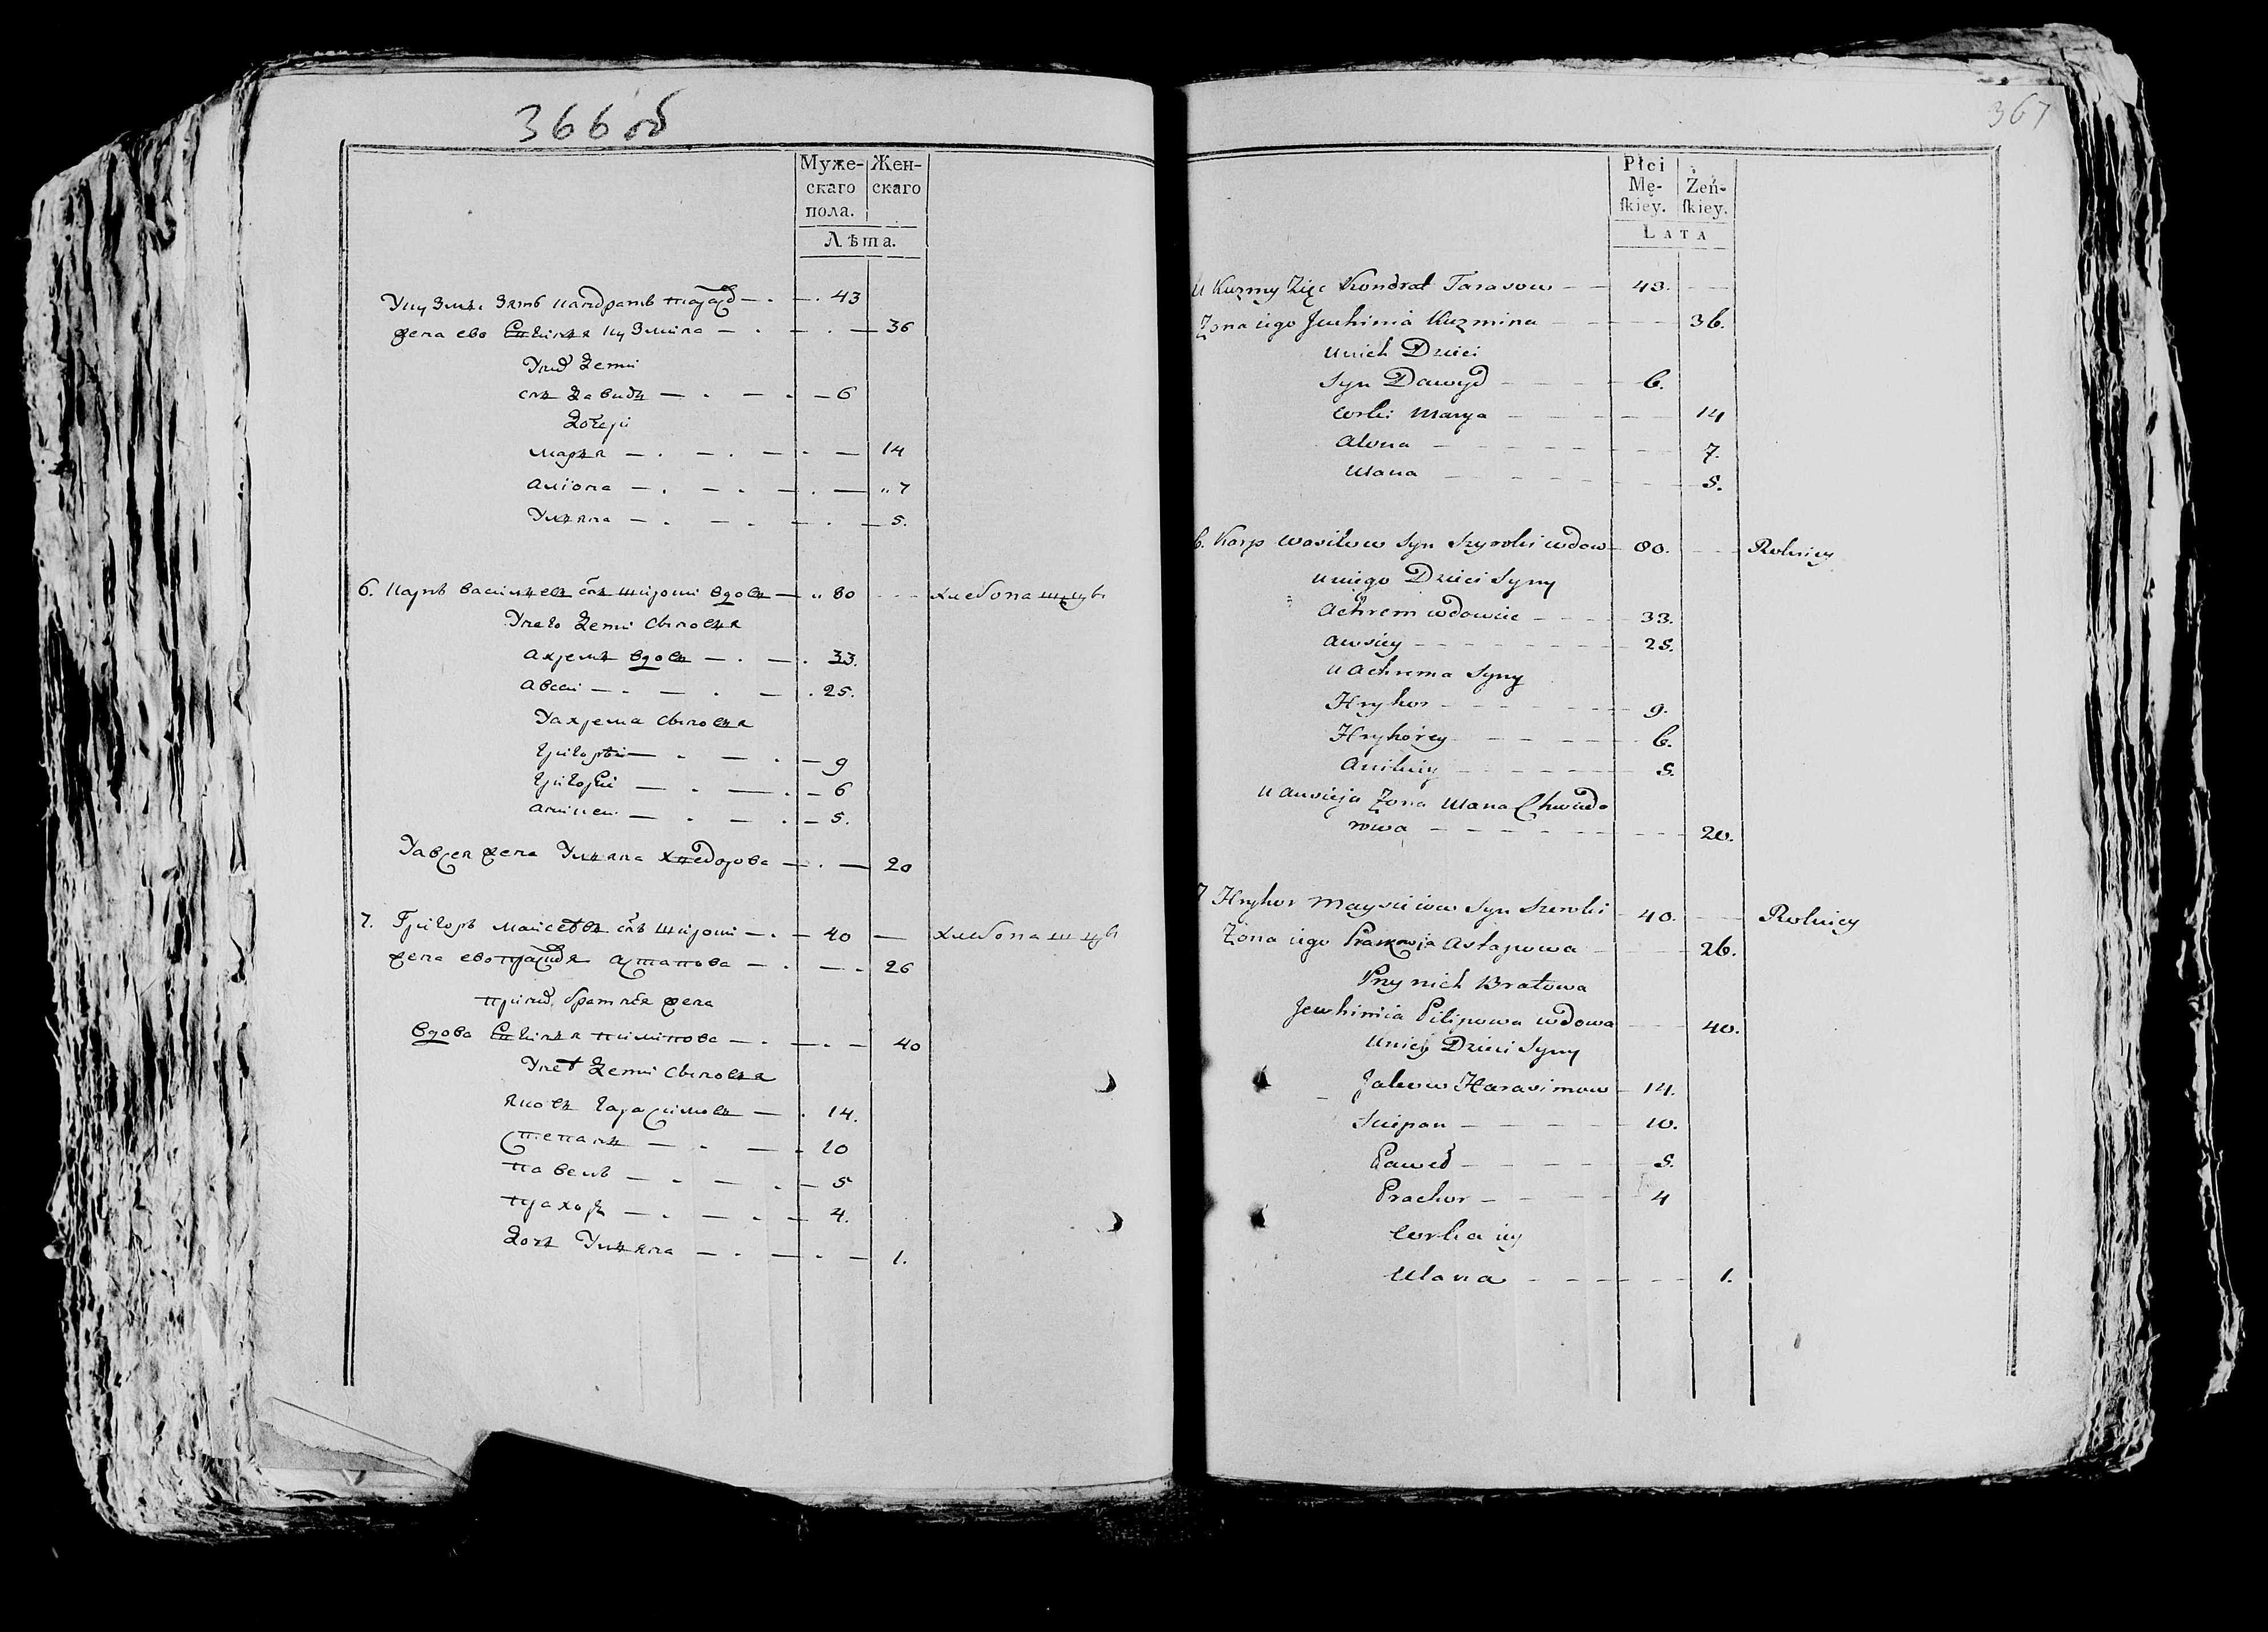 366 об
Муже- Жен-
скаго скаго
пола.
Лѣта.
У кузмы Зять кандратъ тарасов — 43
жена ево Евгиня кузмина — 36
У них Дети
снъ Давидъ — 6
Дочери
марья — 14
алюна — 7
Ульяна — 5.
6. карпъ васильевъ снъ широки вдовъ — 80 хлебопашцы
У него Дети сыновья
ахремъ вдовъ — 33.
авсеи — 25.
У ахрема сыновья
григоръи — 9
григореи — 6
аникеи — 5.
У авсея жена Ульяна хведорова — 20
7. Григоръ маисеевъ снъ широки — 40 — хлебопашцы
жена ево прасковя астапова — 26
при них братняя жена
вдова Евгиня пилипова — 40
У неё Дети сыновья
яковъ гарасимовъ — 14.
степанъ — 10
павелъ — 5
прахоръ — 4.
Дочь Ульяна — 1.
367
Płci
Mę- Żeń-
skiey. skiey.
LATA
U Kuzmy Zięc Kondrat Tarasow — 43.
Zona iego Jewhinia Kuzmina — 36.
u nich Dzieci
Syn Dawyd — 6.
corki Marya — 14
Alona — 7.
Ulana — 5.
6. Karp Wasilow Syn Szyroki wdow — 80. Rolnicy
u niego Dzieci Syny
Achrem wdowiec — 33.
Awsiey — 25.
u Achrema Syny
Hryhor — 9.
Hryhorey — 6.
Anikiey — 5.
u Awsieja Zona Ulana Chwiedo
rowa — 20.
7 Hryhor Maysieiow Syn Szeroki — 40. Rolnicy
Zona iego Praskowja Astapowa — 26.
Przy nich Bratowa
Jewhinia Pilipowa wdowa — 40.
u niey Dzieci Syny
Jakow Harasimow — 14.
Sciepan — 10.
Paweł — 5.
Prachor — 4
Corka iey
Ulana — 1.